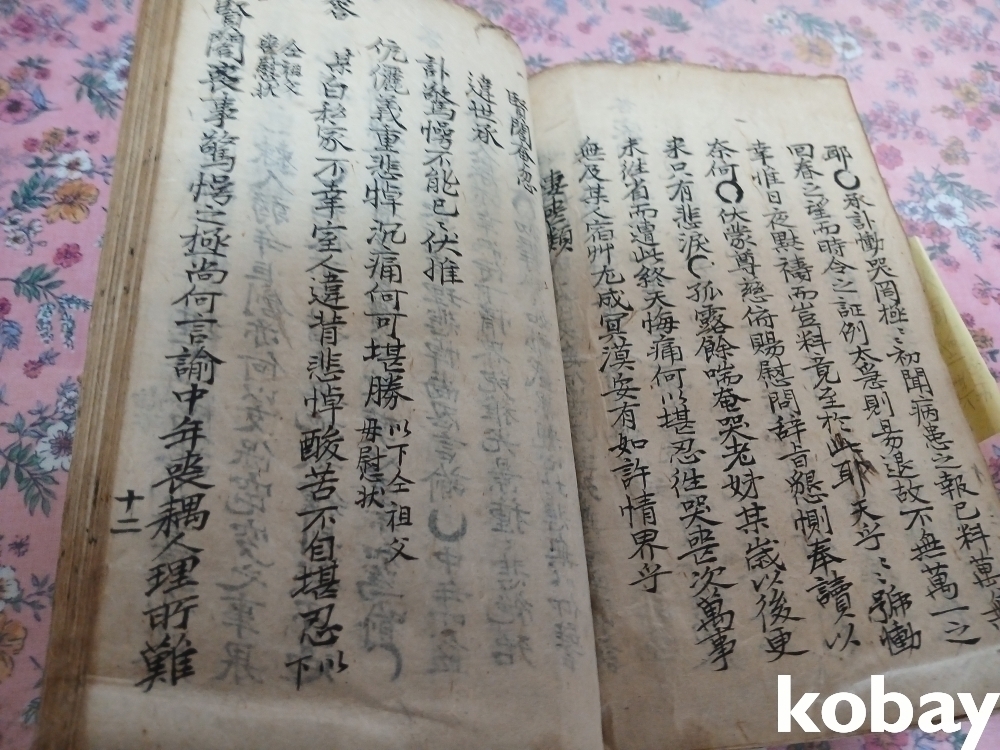 耶○承訃慟哭罔極〻初聞病患之報已料萬無
回春之望而時令之証例太急則易退故不無萬一之
幸惟日夜黙禱而豈料竟至於此耶天乎〻號慟
奈何○伏蒙尊慈俯賜慰問辞言懇惻奉讀以
來只有悲淚○孤露餘喘奄哭老姊某歲以後更
未往省而遭此終天悔痛何以堪忍徃哭喪次萬事
無及某人宿艸尤成冥漠安有如許情界乎
妻喪類
賢閤奄忽
違世承
訃驚愕不能已〻伏惟
伉儷義重悲悼沉痛何可堪勝 以下仝祖父
母慰狀
答
某白私家不幸室人違背悲悼酸苦不自堪忍 以
下
仝祖父
母慰狀
賢閤喪事驚愕之極尚何言諭中年喪耦人理所難
十二
kobay